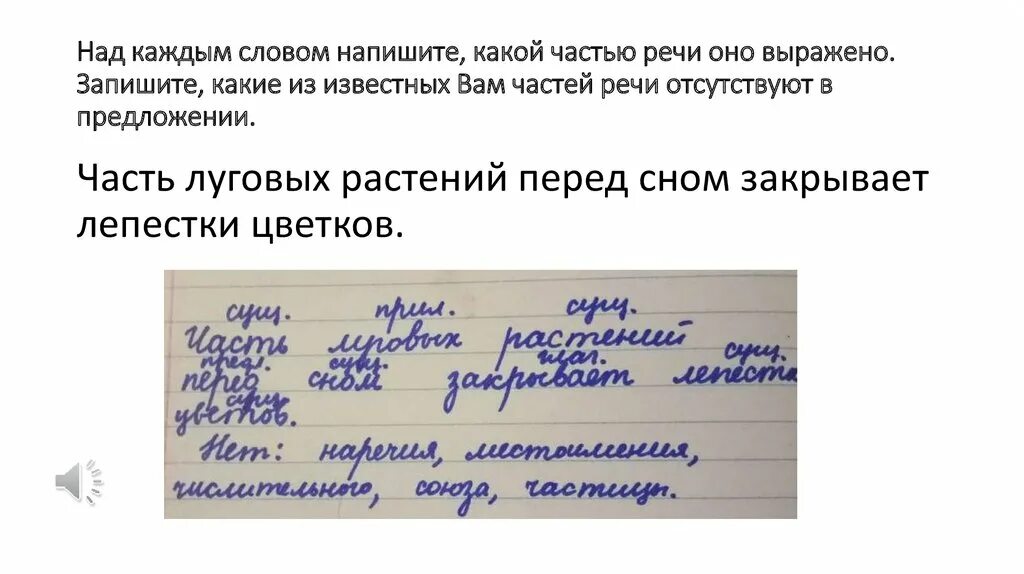 Над каждым словом напишите, какой частью речи оно выражено.
Запишите, какие из известных Вам частей речи отсутствуют в
предложении.
Часть луговых растений перед сном закрывает
лепестки цветков.
сущ. прил. сущ.
Часть луговых растений
предл. сущ. глаг. сущ.
перед сном закрывает лепестк
сущ.
цветов.
Нет: наречия, местоимения,
числительного, союза, частицы.